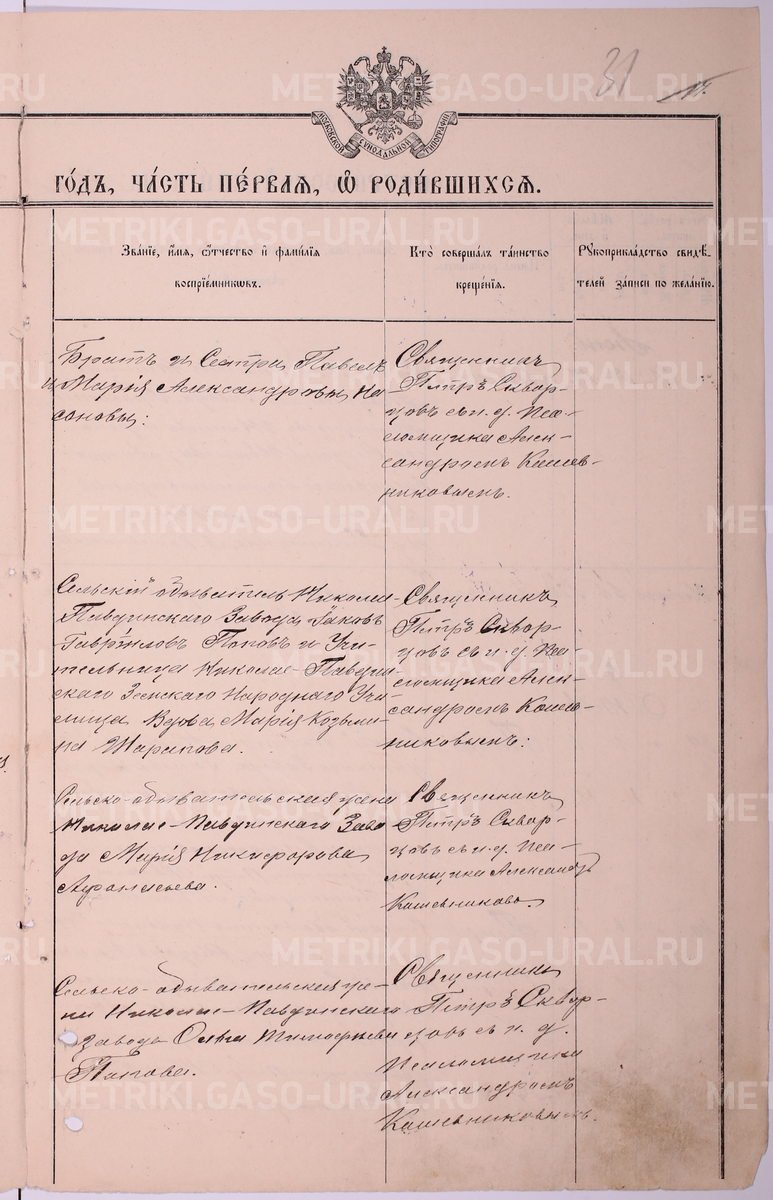 31
МОСКОВСКОЙ СУНОДАЛЬНОЙ ТИПОГРАФІИ
ГО́ДЪ, ЧА́СТЬ ПЕ́РВАЯ, Ѽ РОДИ́ВШИХСЯ.
Зва́ніе, и҆́мя, ѻ҆́тчество и҆ фами́лія
воспріе́мникωвъ.
Кто̀ соверша́лъ та́инство
креще́нія.
Рꙋкоприкла́дство свидѣ́-
телей за́писи по жела́нію.
Братъ и Сестра Павелъ
и Марія Александровы Ка-
сановы:
Священникъ
Петръ Сквор-
цовъ съ и. д. Пса-
ломщика Алек-
сандромъ Кашев-
никовымъ.
Сельскій обыватель Николае-
Павдинскаго Завода Іаковъ
Гавріиловъ Поповъ и Учи-
тельница Николае-Павдин-
скаго Земскаго Народнаго Учи-
лища Вдова Марія Козьми-
на Шарапова.
Священникъ
Петръ Сквор-
цовъ съ и. д. Пса-
ломщика Алек-
сандромъ Кашев-
никовымъ:
Сельско-обывательская жена
Николае-Павдинскаго Заво-
да Марія Никифорова
Афанасьева.
Священникъ
Петръ Сквор-
цовъ съ и. д. Пса-
ломщика Александръ
Кашевниковъ.
Сельско-обывательская же-
на Николае-Павдинскаго
завода Ольга Тимофѣева
Попова.
Священникъ
Петръ Сквор-
цовъ съ и. д.
Псаломщика
Александромъ
Кашевниковымъ.
METRIKI.GASO-URAL.RU